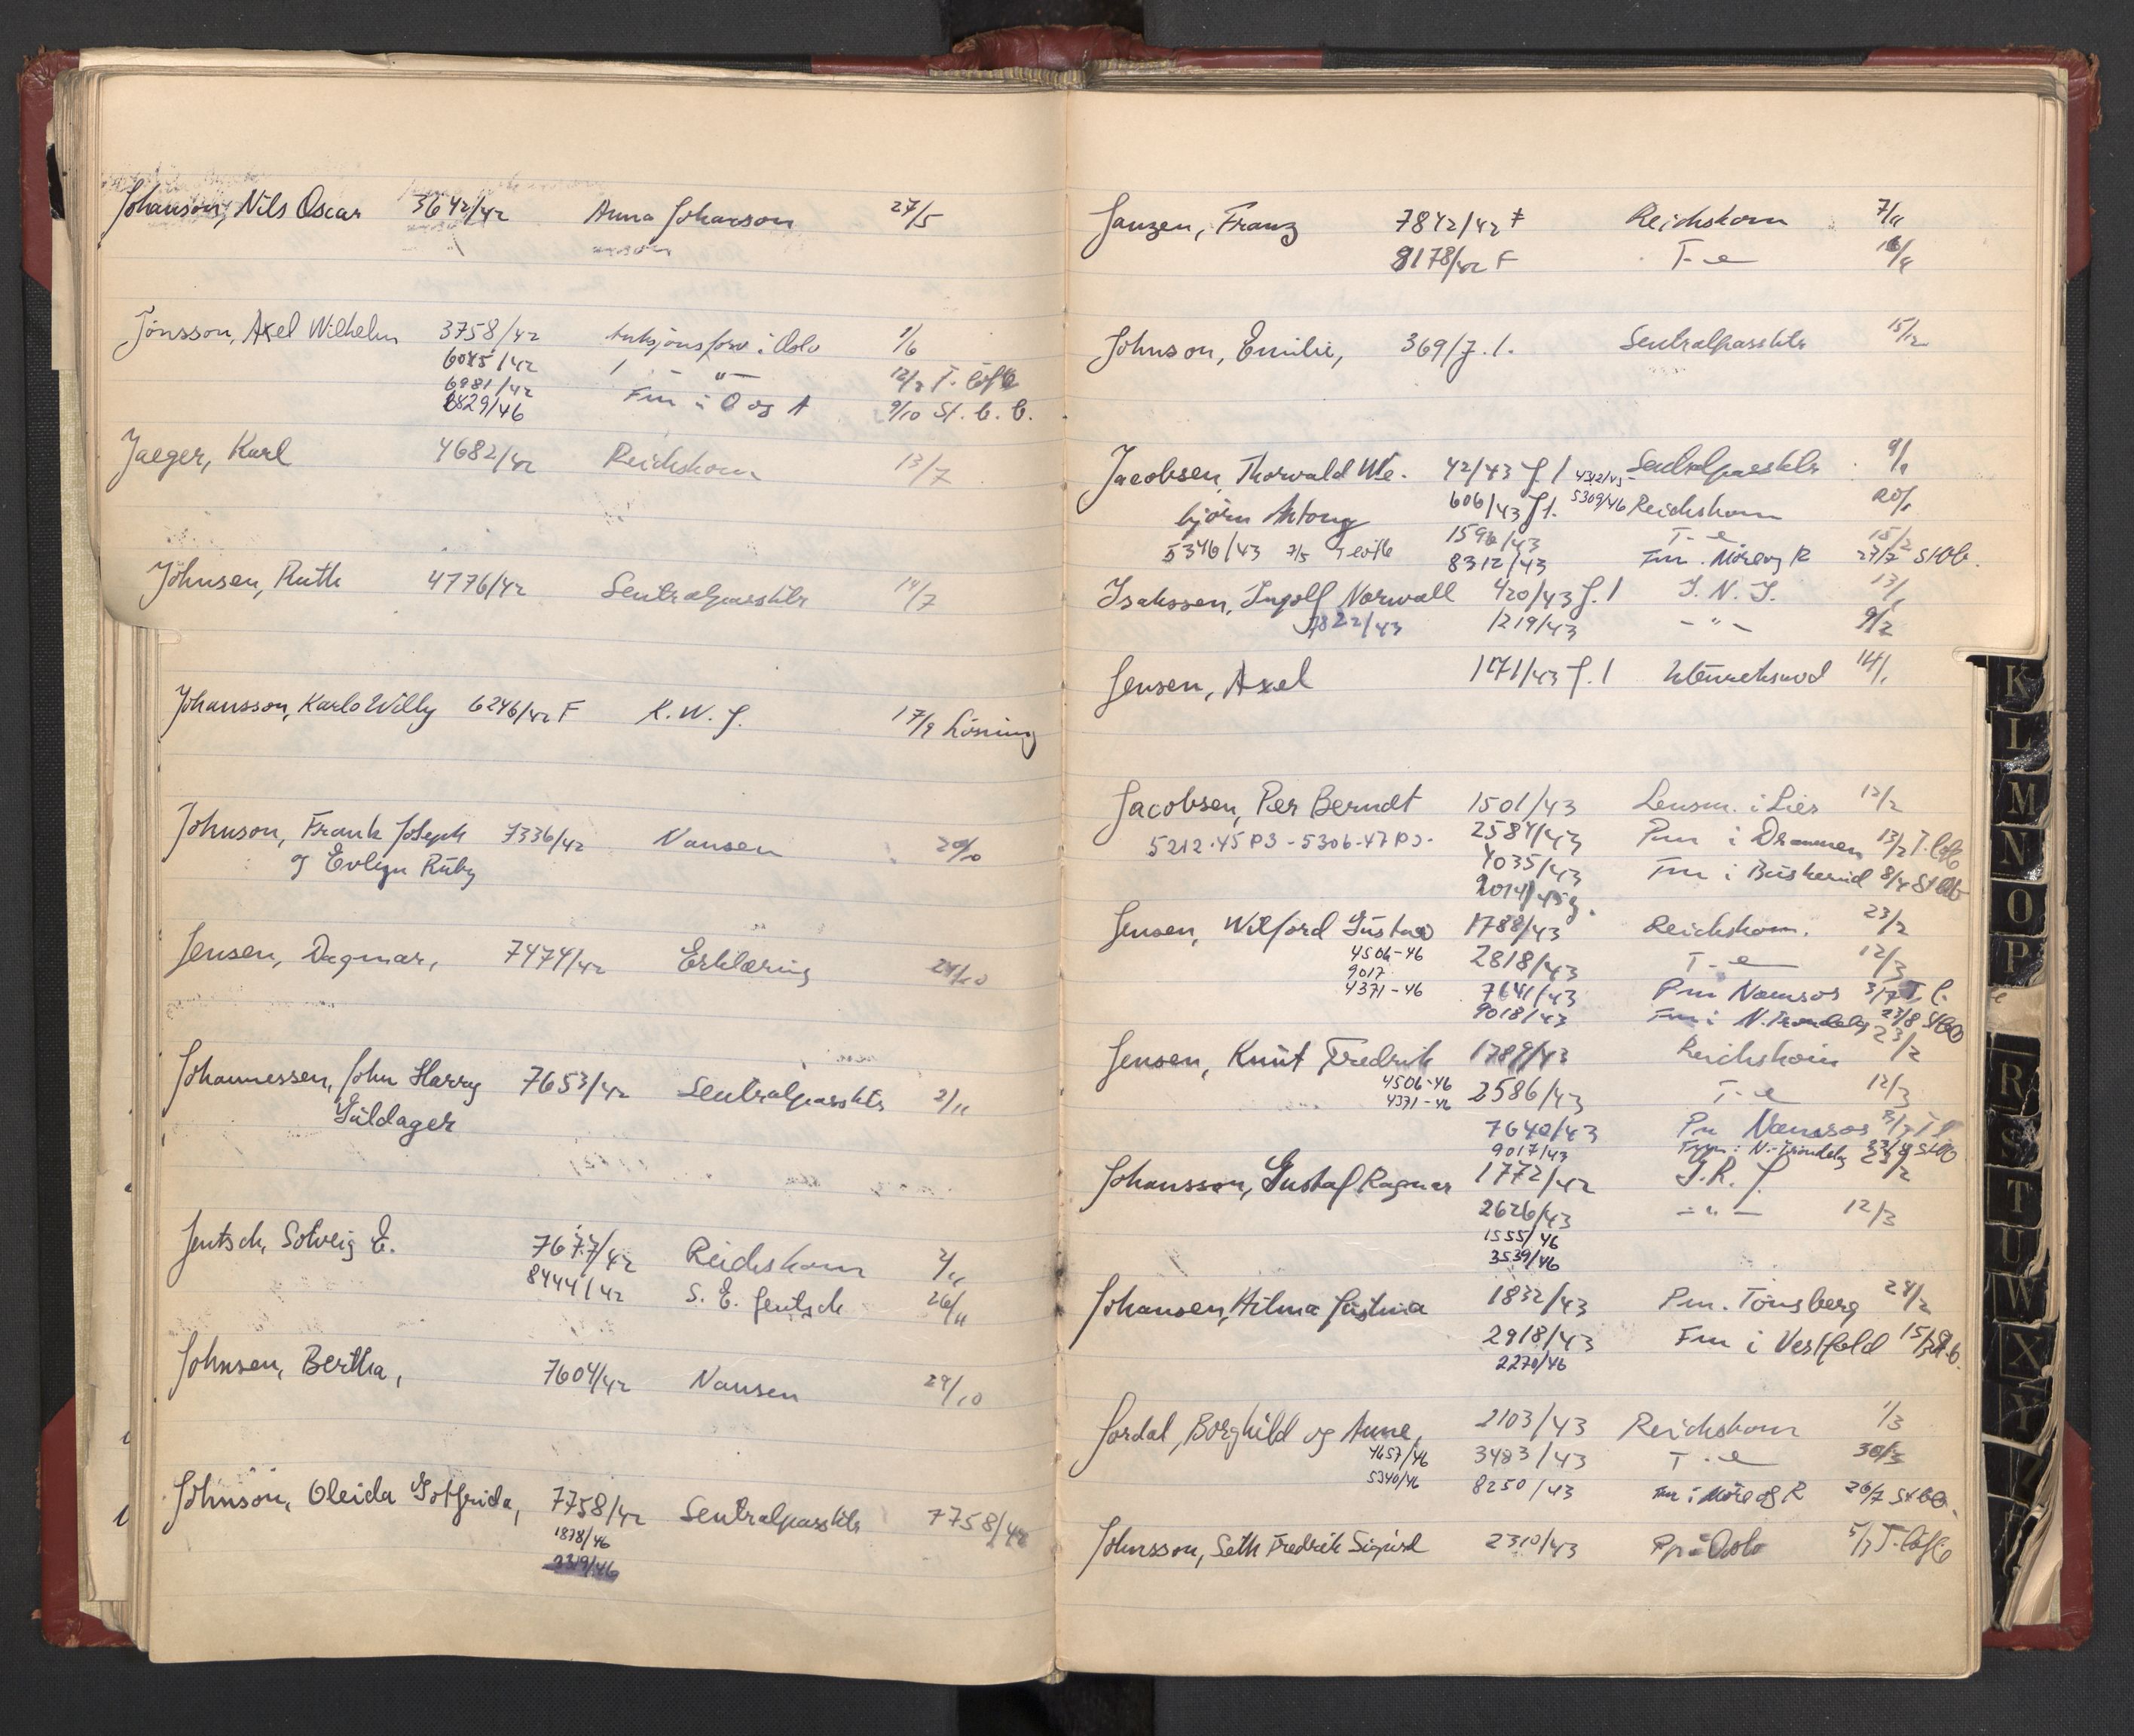 Johanson, Nils Oscar 3642/42 Anna Johanson 27/5
Jönsson, Axel Wilhelm 3758/42 Auksjonsforv i Oslo 1/6
6045/42 — " — 12/
6981/42 Fm i O og A 9/10 St. b. b.
6829/46
Jaeger, Karl 4682/42 Reichskom 13/7
Johnsen, Ruth 4776/42 Sentralpassktr 14/7
Johansson, Karlo Willy 6246/42 F K. W. J. 17/9 Løsning
Johnson, Frank Joseph 7336/42 Nansen 20/10
og Evlyn Ruby
Jensen, Dagmar, 7474/42 Erklæring 24/10
Johannessen, John Harry 7653/42 Sentralpassktr 2/11
Güldager
Jentsch, Solveig E. 7677/42 Reichskom 2/11
8444/42 S. E. Jentsch 26/11
Johnsen, Bertha, 7604/42 Nansen 29/10
Johnson, Oleida Gotfrida, 7758/42 Sentralpassktr 7758/42
1878/46
2319/46
Janzen, Franz 7842/42 F Reichskom 7/11
8178/42 F T-e 16/11
Johnson, Emilie, 369/J.1. Sentralpassktr 15/12
Jacobsen, Thorvald We- 42/43 J.1 4312/45 Sentralpassktr 9/1
bjørn Antony 606/43 J1. 5309/46 Reichskom 20/1
1596/43 T-e 15/2
5346/43 7/5 8312/43 Fm. Möre og R 27/7 StOb.
Isakssen, Ingolf Norwall 420/43 J.1 J. N. J. 13/1
7822/43 1219/43 - " - 9/2
Jensen, Axel 1171/43 J.1 14/1
Jacobsen, Per Berndt 1501/43 Lensm. i Lier 12/2
5212-45 PJ - 5306-47 PJ- 2584/43 Pm i Drammen 13/2
4035/43 Fm i Buskerud 8/4
2014/45
Jensen, Wilford Gustav 1788/43 Reichskom. 23/2
4506-46 2818/43 T-e 12/3
9017
4371-46 7641/43 Pm Namsos 3/7 T. l.
9018/43 Fm i N. Trøndelag 23/8
Jensen, Knut Fredrik 1789/43 Reichskom 23/2
4506-46 2586/43 T-e 12/3
4371-46
7640/43 Pm Namsos 3/7
9017/43 Fm i N-Trøndelag 23/8
Johansson, Gustaf Ragnar 1772/42 G. R. J. 23/2
2626/43 - " - 12/3
1555/46
3539/46
Johansen, Hilma Justina 1832/43 Pm. Tønsberg 24/2
2918/43 Fm i Vestfold 15/3
2270/46
Jordal, Borghild og Anne, 2103/43 Reichskom 1/3
4657/46 3483/43 T-e 30/3
5340/46 8250/43 Fm i Möre og R 26/7
Johnsson, Seth Fredrik Sigurd 2310/43 Pp i Oslo 5/3